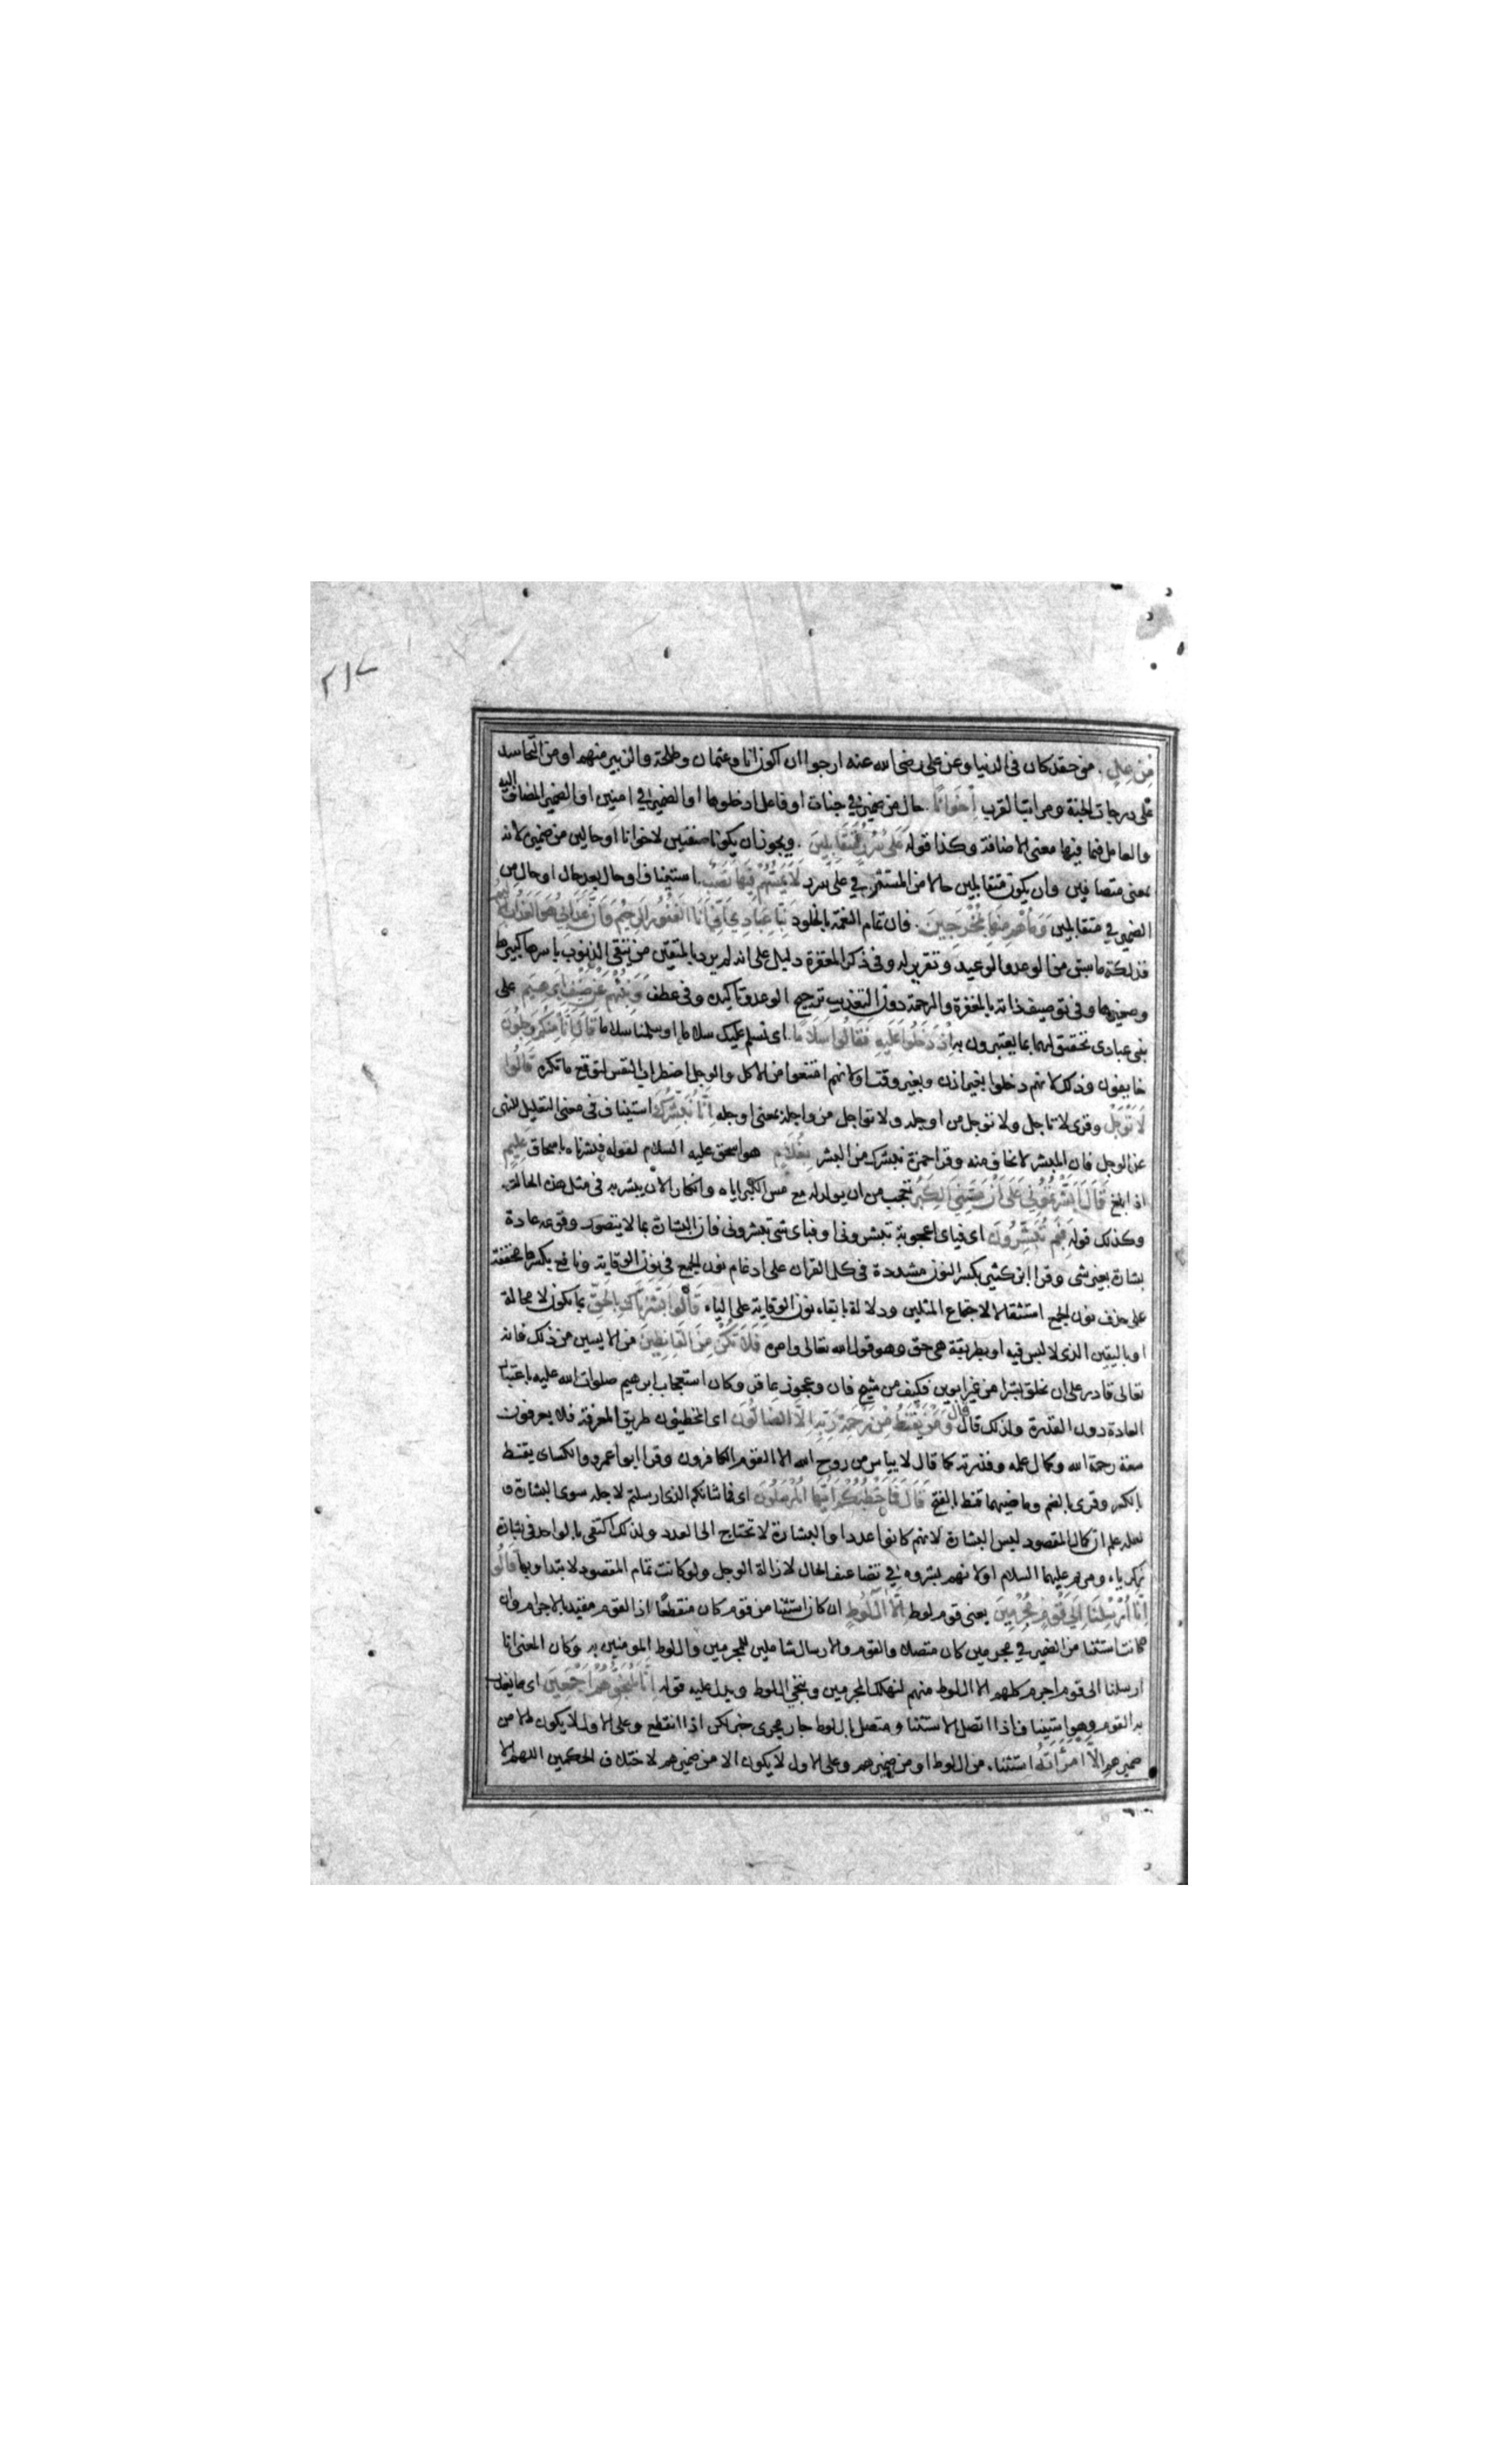 ٢١٧
مِنْ غِلٍّ. من حقد كان فى الدنيا وعن على رضى الله عنه ارجوا ان اكون انا وعثمان وطلحة والزبير منهم او من التحاسد
على درجات الجنة ومراتب القرب اِخْوَانًا. حال من ضمير فى جنات او فاعل ادخلوها او الضمير فى امنين او الضمير المضاف اليه
والعامل فيها معنى الاضافة وكذا قوله عَلَى سُرُرٍ مُتَقَابِلِينَ. ويجوز ان يكونا صفتين لاخوانا او حالين من ضميره لانه
بمعنى متصافين وان يكون متقابلين حالا من المستتر فى على سرر لَا يَمَسُّهُمْ فِيهَا نَصَبٌ. استيناف او حال بعد حال او حال من
الضمير فى متقابلين وَمَا هُمْ مِنْهَا بِمُخْرَجِينَ. فان تمام النعمة بالخلود نَبِّئْ عِبَادِي اَنِّي اَنَا الْغَفُورُ الرَّحِيمُ وَاَنَّ عَذَابِي هُوَ الْعَذَابُ الْاَلِيمُ
فذلكة ما سبق من الوعد والوعيد وتقرير له وفى ذكر المغفرة دليل على انه لم يرد بالمتقين من يتقى الذنوب باسرها كبيرها
وصغيرها وفى توصيف ذاته بالمغفرة والرحمة دون التعذيب ترجيح الوعد وتاكيده وفى عطف وَنَبِّئْهُمْ عَنْ ضَيْفِ اِبْرَهِيمَ على
نبئ عبادى تحقيق لهما بما يعتبرون به اِذْ دَخَلُوا عَلَيْهِ فَقَالُوا سَلَامًا. اى نسلم عليك سلاما او سلمنا سلاما قَالَ اِنَّا مِنْكُمْ وَجِلُونَ
خايفون وذلك لانهم دخلوا بغير اذن وبغير وقت او لانهم امتنعوا من الاكل والوجل اضطراب النفس لتوقع ما تكره قَالُوا
لَا تَوْجَلْ وقرى لا تاجل ولا توجل من اوجله ولا تواجل من واجله بمعنى اوجله اِنَّا نُبَشِّرُكَ استيناف فى معنى التعليل للنهى
عن الوجل فان المبشر لا يخاف منه وقرا حمزة نبشرك من البشر بِغُلَامٍ هو اسحق عليه السلام لقوله فبشرناه باسحاق عَلِيمٍ
اذا بلغ قَالَ اَبَشَّرْتُمُونِي عَلَى اَنْ مَسَّنِيَ الْكِبَرُ تعجب من ان يولد له مع مس الكبر اياه وانكار لان يبشر به فى مثل هذه الحالة
وكذلك قوله فَبِمَ تُبَشِّرُونَ اى فباى اعجوبة تبشرونى او فباى شى تبشرونى فان البشارة بما لا يتصور وقوعه عادة
بشارة بغير شى وقرا ابن كثير بكسر النون مشددة فى كل القران على ادغام نون الجمع فى نون الوقاية ونافع بكسرها مخففة
على حذف نون الجمع استثقالا لاجتماع المثلين ودلالة بابقاء نون الوقاية على الياء قَالُوا بَشَّرْنَاكَ بِالْحَقِّ بما يكون لا محالة
او باليقين الذى لا لبس فيه او بطريقة هى حق وهو قول الله تعالى وامره فَلَا تَكُنْ مِنَ الْقَانِطِينَ من الايسين من ذلك فانه
تعالى قادر على ان يخلق بشرا من غير ابوين فكيف من شيخ فان وعجوز عاقر وكان استعجاب ابرهيم صلوات الله عليه باعتبار
العادة دون القدرة ولذلك قال قال وَمَنْ يَقْنَطُ مِنْ رَحْمَةِ رَبِّهِ اِلَّا الضَّالُّونَ اى المخطيون طريق المعرفة فلا يعرفون
سعة رحمة الله وكمال علمه وقدرته كما قال لا يياس من روح الله الا القوم الكافرون وقرا ابو عمرو والكساى يقنط
بالكسر وقرى بالضم وماضيهما قنط بالفتح قَالَ فَمَا خَطْبُكُمْ اَيُّهَا الْمُرْسَلُونَ اى فما شانكم الذى ارسلتم لاجله سوى البشارة و
لعله علم ان كمال المقصود ليس البشارة لانهم كانوا عددا والبشارة لا تحتاج الى العدد ولذلك اكتفى بالواحد فى بشارة
زكرياء ومريم عليهما السلام او لانهم بشروه فى تضاعيف الحال لازالة الوجل ولو كانت تمام المقصود لابتداوا بها قَالُوا
اِنَّا اُرْسِلْنَا اِلَى قَوْمٍ مُجْرِمِينَ يعنى قوم لوط اِلَّا آلَ لُوطٍ ان كان استثنا من قوم كان منقطعًا اذ القوم مقيد بالاجرام وان
كانت استثنا من الضمير فى مجرمين كان متصلا والقوم والارسال شاملين للمجرمين وال لوط المومنين به وكان المعنى انا
ارسلنا الى قوم اجرم كلهم الا ال لوط منهم لنهلك المجرمين وننجى ال لوط ويدل عليه قوله اِنَّا لَمُنَجُّوهُمْ اَجْمَعِينَ اى مما يعذب
به القوم وهو استيناف اذا اتصل الاستثنا ومتصل بال لوط جار مجرى خبر لكن اذا انقطع وعلى الاول لا يكون الا من
ضميرهم اِلَّا امْرَأَتَهُ استثنا. من ال لوط او من ضميرهم وعلى الاول لا يكون الا من ضميرهم لاختلاف الحكمين اللهم الا